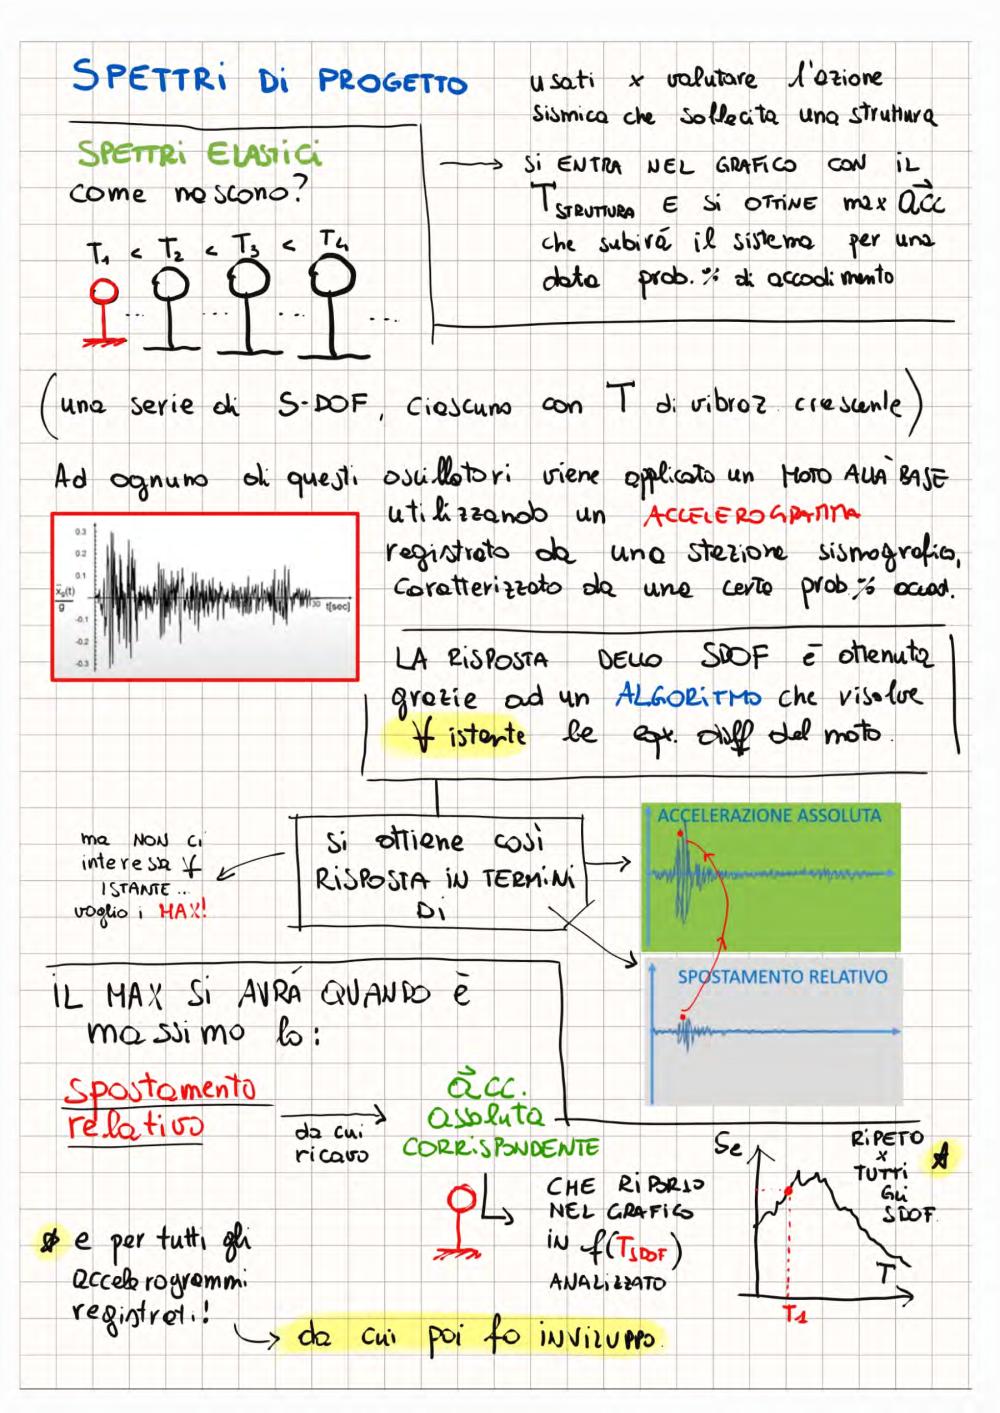 SPETTRI DI PROGETTO
usati x valutare l'azione
sismica che sollecita una struttura
SPETTRI ELASTICI
come nascono?
→ SI ENTRA NEL GRAFICO CON IL
T STRUTTURA E SI OTTINE max acc
che subirá il sistema per una
data prob. % di accadimento
T1 < T2 < T3 < T4
... ... ... ...
(una serie di S-DOF, ciascuno con T di vibraz. crescente)
Ad ognuno di questi oscillatori viene applicato un MOTO ALLA BASE
utilizzando un ACCELEROGRAMMA
registrato da una stazione sismografica,
caratterizzato da una certa prob. % accad.
0.3
0.2
0.1
ẍg(t)
g
-0.1
-0.2
-0.3
30 t[sec]
LA RISPOSTA DELLO SDOF è ottenuta
grazie ad un ALGORITMO che risolve
∀ istante le eqz. diff del moto.
ma NON CI
interessa ∀
ISTANTE...
voglio i MAX!
Si ottiene così
RISPOSTA IN TERMINI
DI
ACCELERAZIONE ASSOLUTA
SPOSTAMENTO RELATIVO
IL MAX SI AVRÁ QUANDO è
massimo lo:
spostamento
relativo
da cui
ricavo
acc.
assoluta
CORRISPONDENTE
CHE RIPORTO
NEL GRAFICO
IN f(TSDOF)
ANALIZZATO
Se
RIPETO
x
TUTTI
GLI
SDOF
T
T1
e per tutti gli
accelerogrammi
registrati!
→ da cui poi fo INVILUPPO.